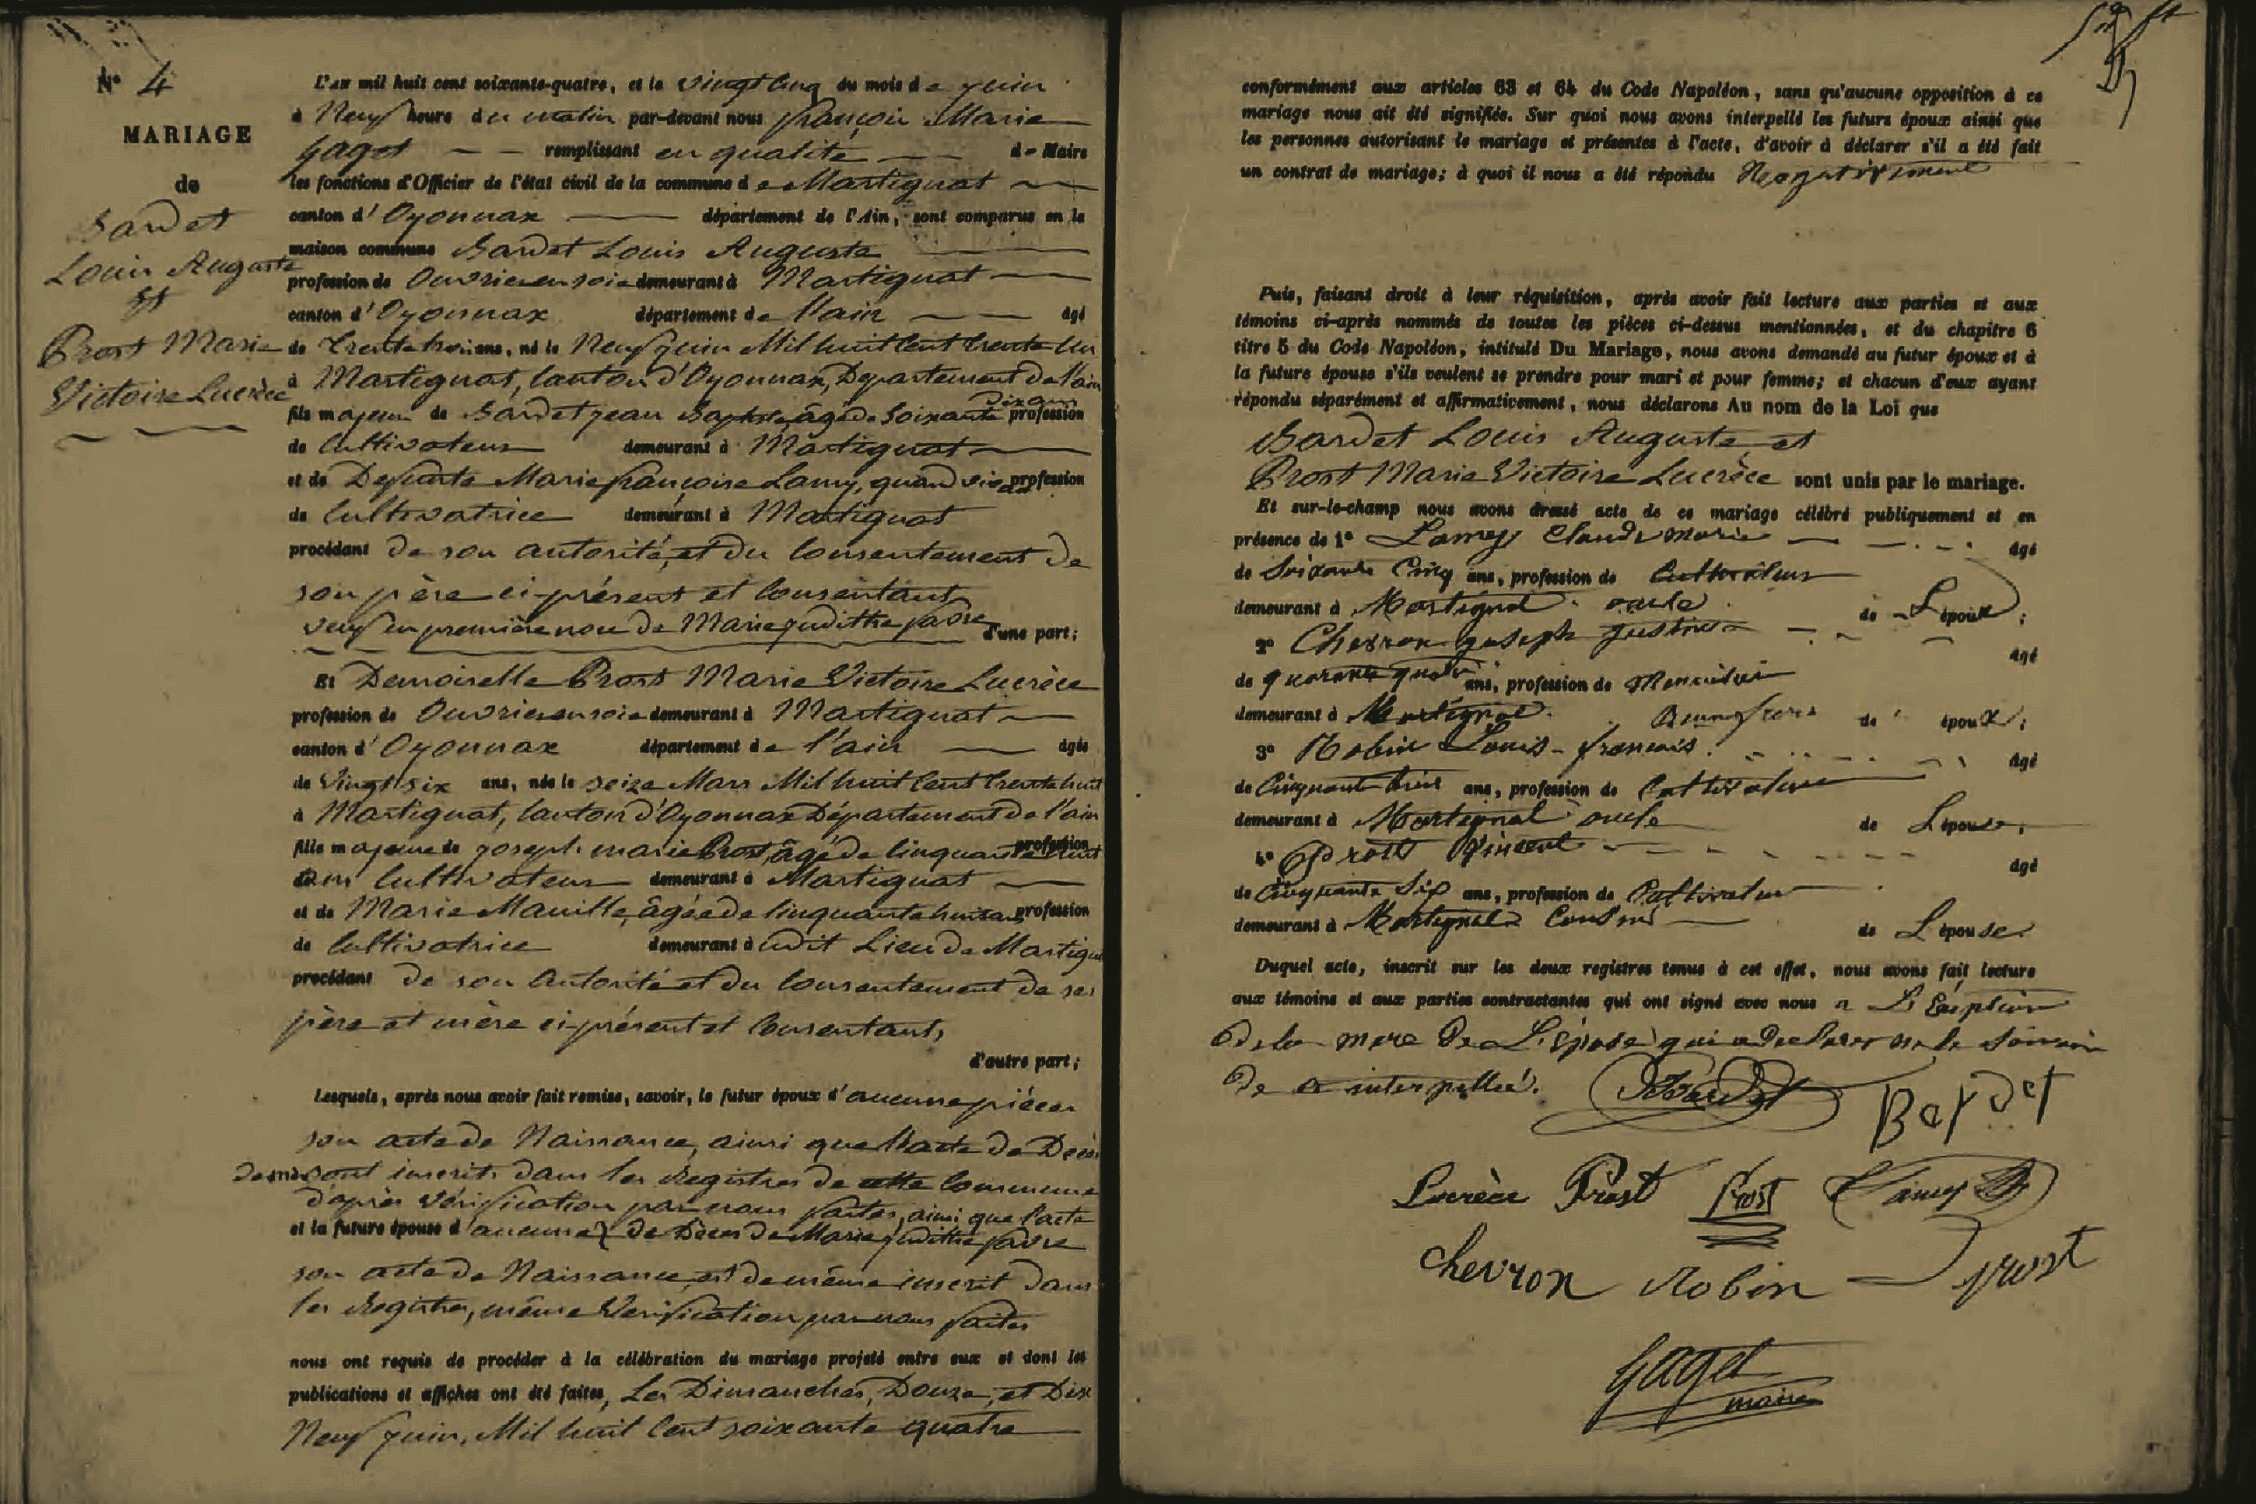 N° 4
MARIAGE
de
Bardet
Louis Auguste
et
Prost Marie
Victoire Lucrèce
L'an mil huit cent soixante-quatre, et le vingt Cinq du mois de juin
à Neuf heure du matin par-devant nous françois Marie
Gaget remplissant en qualité de Maire
les fonctions d'Officier de l'état civil de la commune de Martignat
canton d'Oyonnax département de l'Ain, sont comparus en la
maison commune Bardet Louis Auguste
profession de Ouvrier en soie demeurant à Martignat
canton d'Oyonnax département de l'ain âgé
de Trente trois ans, né le Neuf juin Mil huit Cent trente Un
à Martignat, Canton d'Oyonnax, Département de l'ain
fils majeur de Bardet jean Baptiste, âgé de Soixante dix ans profession
de Cultivateur demeurant à Martignat
et de Defunte Marie françoise Lamy, quand vivait profession
de Cultivatrice demeurant à Martignat
procédant de son autorité, et du Consentement de
son père ci-présent et Consentant
veuf en première noce de Marie juditthe favre d'une part;
Et Demoiselle Prost Marie Victoire Lucrèce
profession de Ouvrière en soie demeurant à Martignat
canton d'Oyonnax département de l'ain âgée
de Vingt six ans, née le seize Mars Mil huit Cent trente huit
à Martignat, Canton d'Oyonnax Département de l'ain
fille majeure de joseph marie Prost, âgé de Cinquante huit profession
de ans Cultivateur demeurant à Martignat
et de Marie Manille, âgée de Cinquante huit ans profession
de Cultivatrice demeurant à udit Lieu de Martignat
procédant de son Autorité et du Consentement de ses
père et mère ci-présent et Consentants
d'autre part;
Lesquels, après nous avoir fait remise, savoir, le futur époux d'aucune pièces
son acte de Naissance, ainsi que l'acte de Décès
sont inscrits dans les Registres de cette Commune
d'après vérification par nous faites, ainsi que l'acte
et la future épouse d'aucune de Décès de Marie juditthe favre
son acte de Naissance, est de même inscrit dans
les Registres, même Vérification par nous faites
nous ont requis de procéder à la célébration du mariage projeté entre eux et dont les
publications et affiches ont été faites, Les Dimanches, Douze, et Dix
Neuf juin, Mil huit Cent soixante quatre
conformément aux articles 63 et 64 du Code Napoléon, sans qu'aucune opposition à ce
mariage nous ait été signifiée. Sur quoi nous avons interpellé les futurs époux ainsi que
les personnes autorisant le mariage et présentes à l'acte, d'avoir à déclarer s'il a été fait
un contrat de mariage; à quoi il nous a été répondu Negativement
Puis, faisant droit à leur réquisition, après avoir fait lecture aux parties et aux
témoins ci-après nommés de toutes les pièces ci-dessus mentionnées, et du chapitre 6
titre 5 du Code Napoléon, intitulé Du Mariage, nous avons demandé au futur époux et à
la future épouse s'ils veulent se prendre pour mari et pour femme; et chacun d'eux ayant
répondu séparément et affirmativement, nous déclarons Au nom de la Loi que
Bardet Louis Auguste et
Prost Marie Victoire Lucrèce sont unis par le mariage.
Et sur-le-champ nous avons dressé acte de ce mariage célébré publiquement et en
présence de 1° Lamy Claude Marie âgé
de Soixante Cinq ans, profession de Cultivateur
demeurant à Martignat oncle de L'époux;
2° Chevron joseph justinien âgé
de quarante quatre ans, profession de Menuisier
demeurant à Martignat Beaufrere de époux;
3° Robin Louis-francois âgé
de Cinquante trois ans, profession de Cultivateur
demeurant à Martignat oncle de L'épouse;
4° Prost Vincent âgé
de Cinquante Six ans, profession de Cultivateur
demeurant à Martignat Cousin de L'épouse
Duquel acte, inscrit sur les deux registres tenus à cet effet, nous avons fait lecture
aux témoins et aux parties contractantes qui ont signé avec nous a L'Exeption
De la mere De L'épouse qui a Declarer ne le Savoir
De ce interpellée.
Bardet Bardet
Lucrèce Prost Prost Lamy
Chevron Robin Prost
Gaget
maire